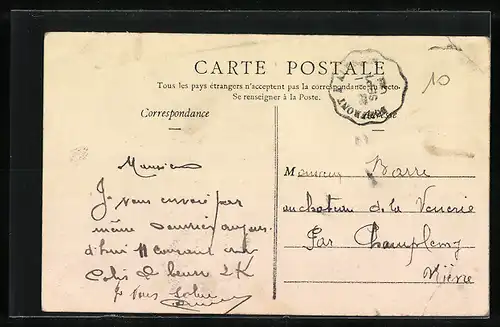 CARTE POSTALE
Tous les pays étrangers n'acceptent pas la correspondance au recto-
Se renseigner à la Poste.
Correspondance
Adresse
10
Monsieur
Je vous envoie par
même courrier aujour
d'hui 11 courant un
Colis de beurre 2K
Je vous salue
Monsieur Barre
au chateau de la Venerie
Par Champlemy
Nièvre